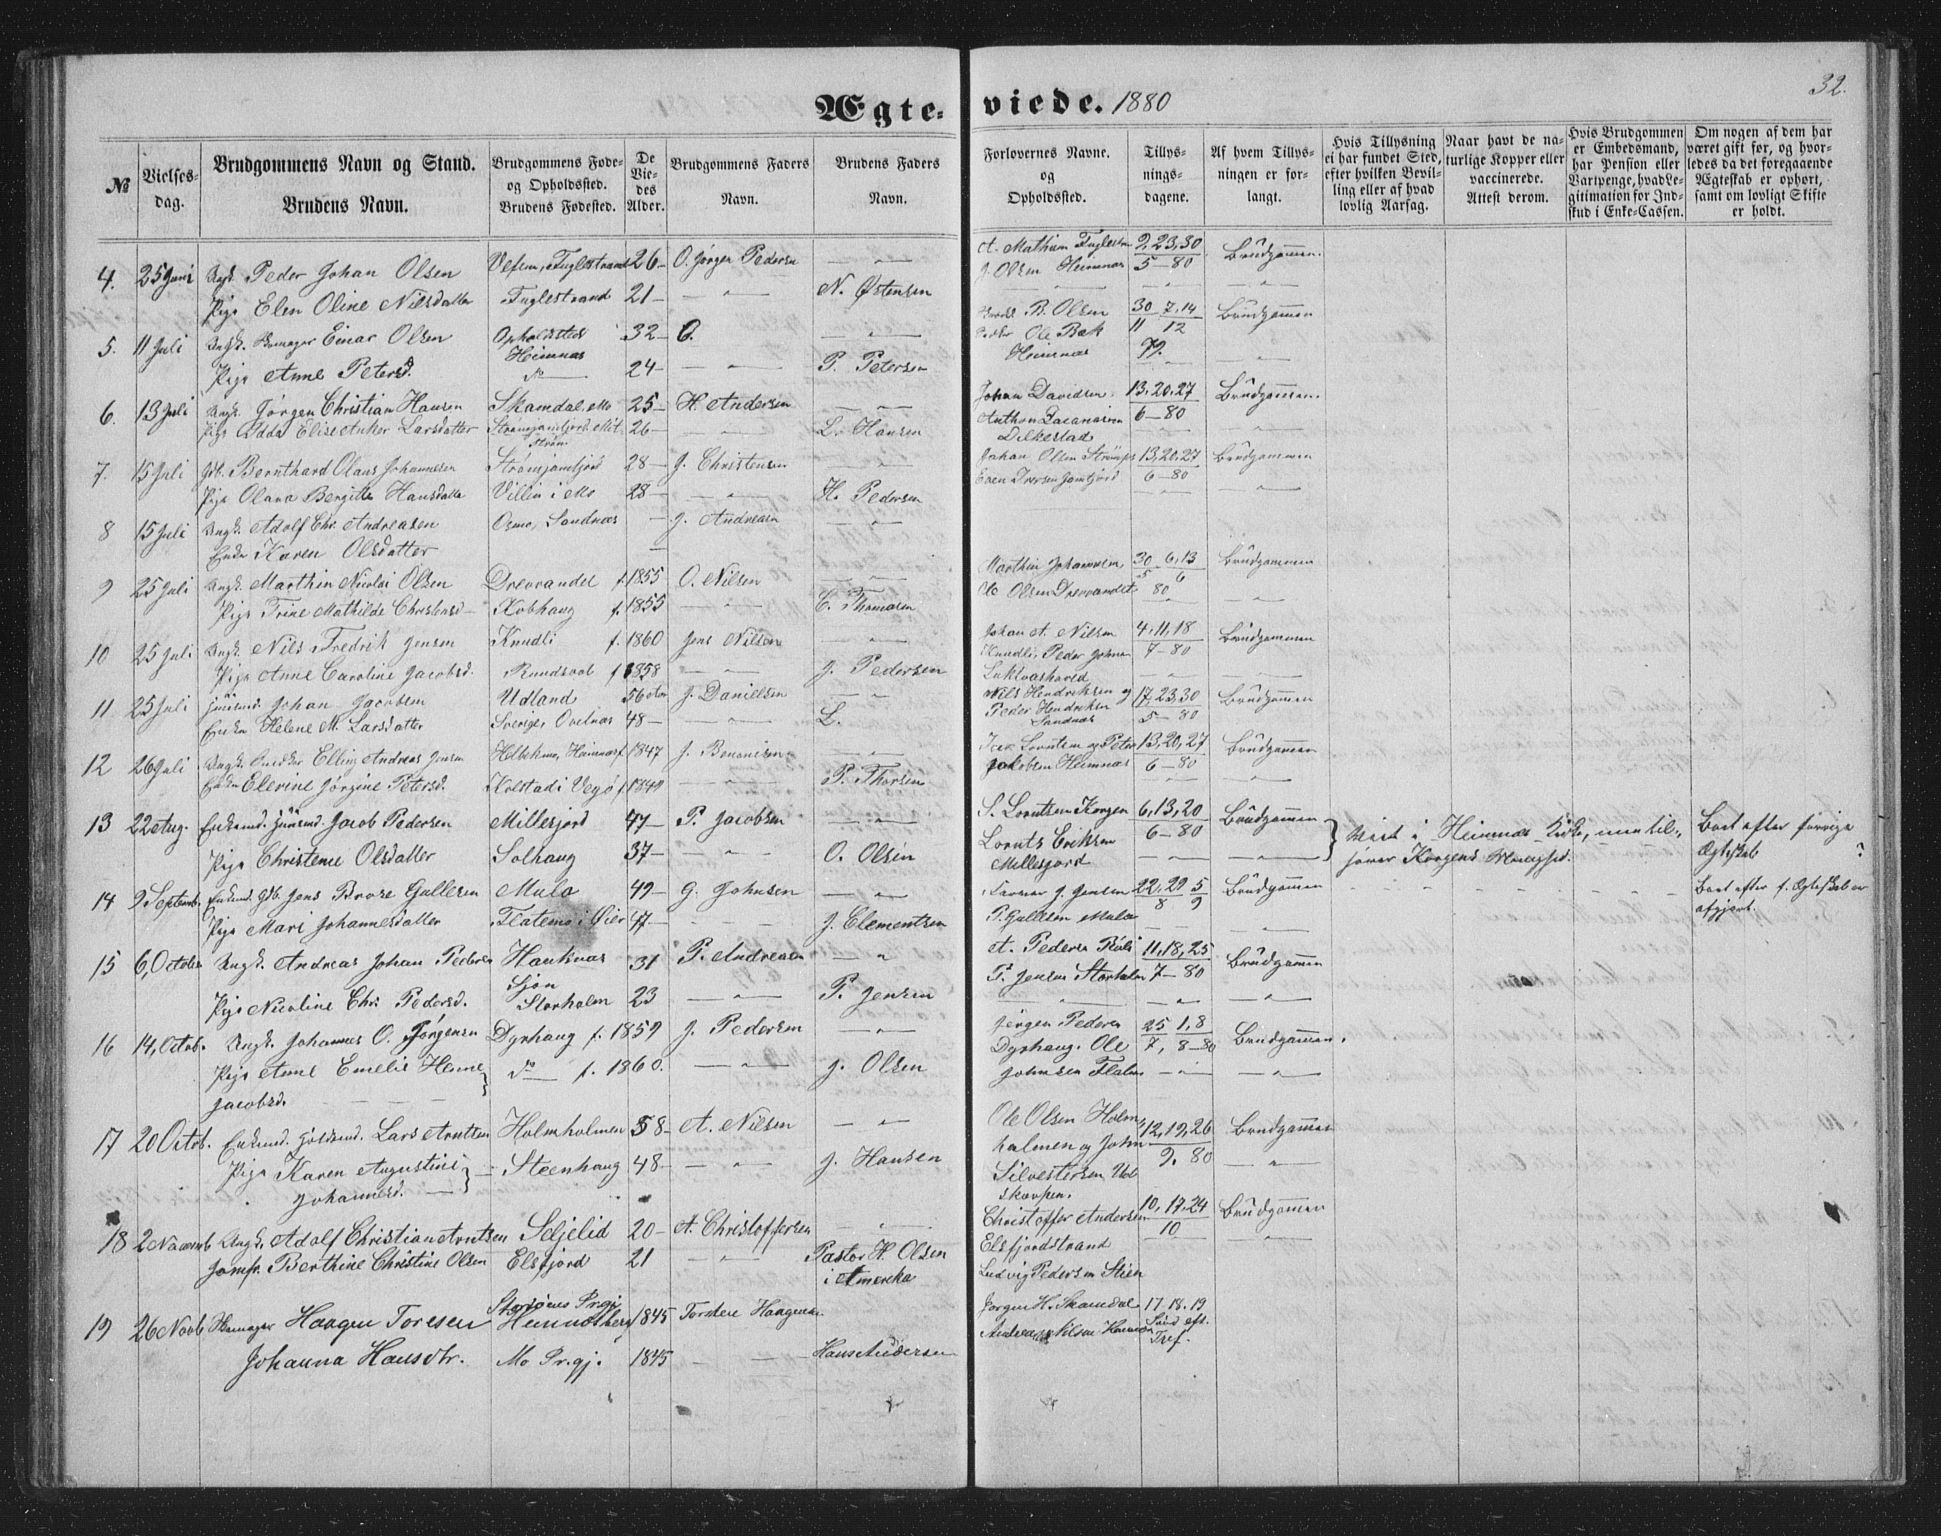 32.
Ægteviede. 1880
No
Vielsesdag.
Brudgommens Navn og Stand.
Brudens Navn.
Brudgommens Føde- og Opholdssted.
Brudens Fødested.
De Viedes Alder.
Brudgommens Faders Navn.
Brudens Faders Navn.
Forlovernes Navne. og Opholdsted.
Tillysningsdagene.
Af hvem Tillysningen er forlangt.
Hvis Tillysning ei har fundet Sted, efter hvilken Bevilling eller af hvad lovlig Aarsag.
Naar havt de naturlige Kopper eller vaccinerede. Attest derom.
Hvis Brudgommen er Embedsmand, har Pension eller Vartpenge, hvad Legitimation for Indskud i Enke-Cassen.
Om nogen af dem har været gift før, og hvorledes da det foregaaende Ægteskab er ophørt, samt om lovligt Skifte er holdt.
4. 25 Juni Ungk. Peder Johan Olsen Vefsen, Fuglestrand 26 O. Jørgen Pedersen A. Mathisen 9, 23, 30 Brudgommen.
Pige Elen Oline Nilsdatter Fuglestrand 21 N. Østensen J. Olsen Hemnæs 5-80
5. 11 Juli Ungk. Einar Olsen Opholdsted 32 O. B. Olsen 30 7, 14 Brudgommen
Hemnæs Ole Bak 11 12
Pige Anne Petersd. 24 P. Petersen Hemnæs 79.
6. 13 Juli Ungk. Jørgen Christian Hansen Skamdal, Mo 25 H. Andersen Johan Davidsen 13, 20, 27 Brudgommen.
Pige Idda Elise Anker Larsdatter 26 L. Hansen Anthon 6-80
7. 15 Juli Gdb. Bernthard Olaus Johannesen Strømjamfjord 28 J. Christensen Johan Olsen 13, 20, 27 Brudgommen
Pige Olava Bergitte Hansdatter Villin i Mo 28 H. Pedersen Even Iversen Jamfjord 6-80
8 15 Juli Ungk. Adolf Chr. Andreasen Osmo, Sandnæs J. Andreasen
Enke Karen Olsdatter
9 25 Juli Ungk. Marthin Nicolai Olsen Drevvandet f. 1855 O. Nilsen Marthin Johannesen 30 6, 13 Brudgommen
Pige Trine Mathilde Christensd. Kobhaug f. 1855 C. Thomasen Ole Olsen Drevvandet 5 6 80
10 25 Juli Ungk. Nils Fredrik Jensen Knudli f. 1860 Jens Nilsen Johan A. Nilsen 4, 11, 18 Brudgommen
Pige Anne Caroline Jacobsd. f 1858 J. Pedersen Knudli, Peder Johnsen 7-80
Lukvashoved
11 25 Juli Huusmd. Johan Jacobsen Udland 56 J. Danielsen Nils Hendriksen og 17, 23, 30 Brudgommen
Enke Helene M. Larsdatter Sverige 48 L. Peder Hendriksen Sandnæs 5-80
12 26 Juli Ungk. Elling Andreas Jensen Hemnæs f 1847 J. Benonisen Lorntsen og Peter 13, 20, 27 Brudgommen
Enke Elevine Jørgine Petersd. Kolstad i Vegø f 1840 P. Thorsen Jakobsen Hemnæs 6-80
13 22 Aug. Enkemd. Huusmd. Jacob Pedersen Millesjord 47 P. Jacobsen S. Lorntsen Korgen 6, 13, 20 Brudgommen
Pige Christence Olsdatter Solhaug 37 O. Olsen Lornts Eriksen Millesjord 6-80
Viet i Hemnæs Kirke, men tilhører Korgens Menighed.
Bort efter forrige Ægteskab ?
14 9 Septemb. Enkemd. Gdb. Jens Brose Gullesen Mula 49 G. Johnsen J. Jensen 22, 29 5 Brudgommen
Pige Mari Johannesdatter Flatemo i Øier 47 J. Clementsen P. Gullesen Mula 8 9
Bort efter f. Ægteskab er afgjort.
15 6, October Ungk. Andreas Johan Pedersen Hauknæs 31 P. Andreasen A. Pedersen 11, 18, 25 Brudgommen
Pige Nicoline Chr. Pedersd. Sjøn Storholm 23 P. Jensen P. Jensen Storholm 7-80
16 14, Octob. Ungk. Johannes O. Jørgensen Dyrhaug f. 1859 J. Pedersen Jørgen Pedersen 25 1, 8 Brudgommen.
Pige Anne Emelie Henne Jacobsd. do f. 1860. J. Olsen Dyrhaug. Ole Johnsen 7, 8-80
17 20 Octob. Enkemd. Lars Arntsen Holmholmen 58 A. Nilsen Ole Olsen Holmholmen og John 12, 19, 26 Brudgommen
Pige Karen Augustine Johannesd. Steenhaug 48 J. Hansen Silvestersen 9. 80
18 2 Novemb Ungk. Adolf Christian Arntsen Seljelid 20 A. Christoffersen Christoffer Andersen 10, 17, 24 Brudgommen
Jomfr. Berthine Christine Olsen Elsfjord 21 Pastor H. Olsen i Amerika Elsfjordstrand 10
Ludvig Pedersen Stien
19 26 Novb Haagen Toresen 1845 Torstein Haagensen Jørgen H. Skamdal 17. 18. 19
Johanna Hansdtr. Mo Prgj. 1845 Hans Andersen Andreas Nilsen Sønd eft. Tref.